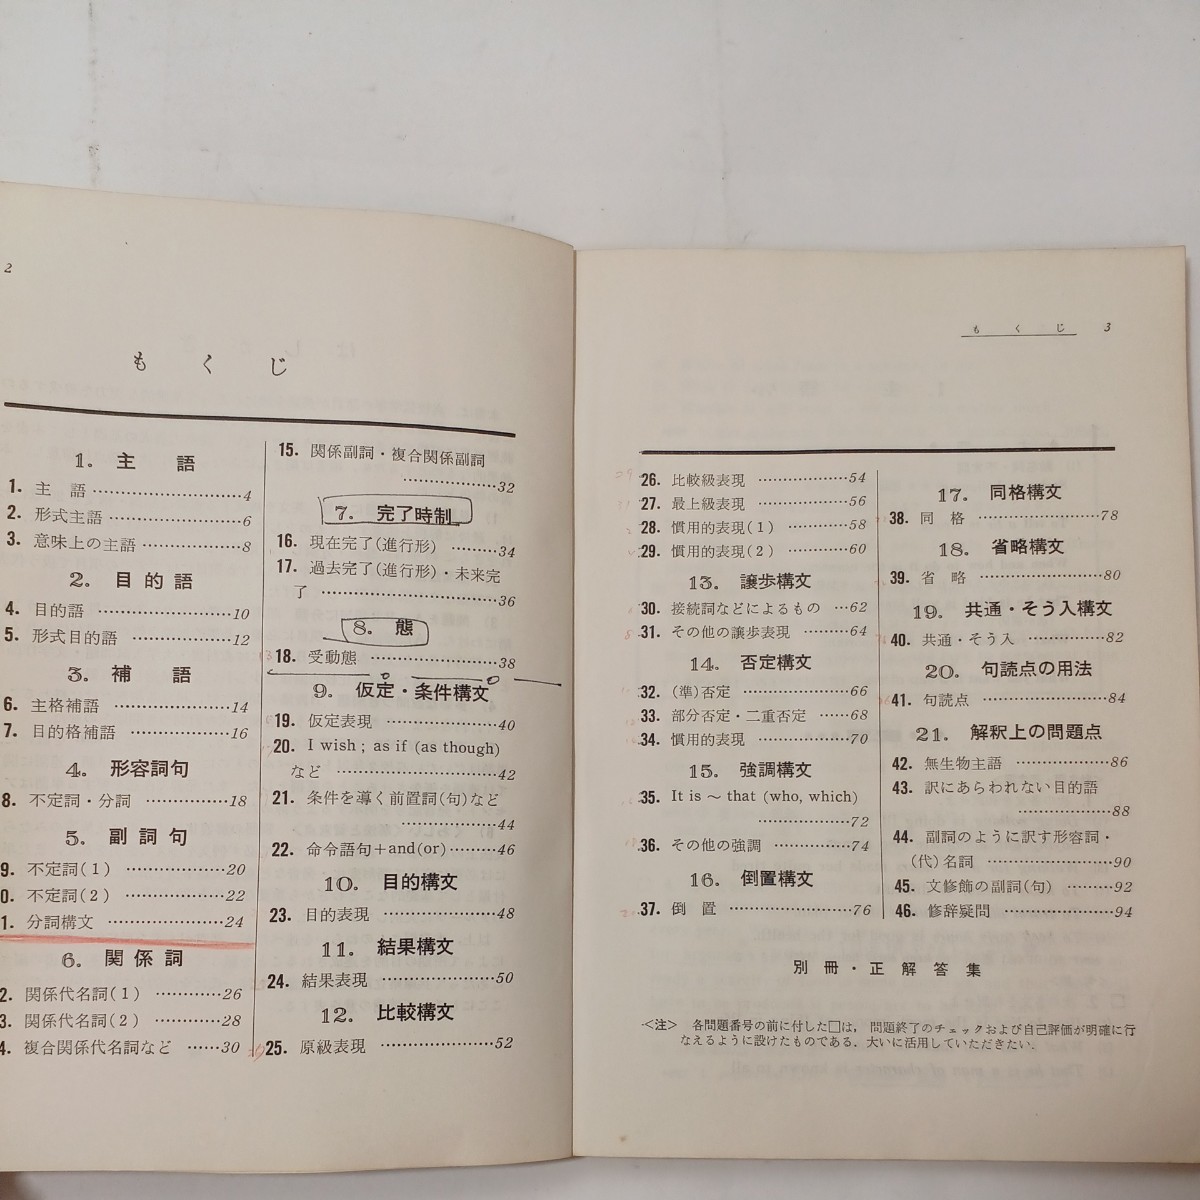 2
もくじ
1. 主語
1. 主語 …………………4
2. 形式主語 …………………6
3. 意味上の主語 ……………8
2. 目的語
4. 目的語 …………………10
5. 形式目的語 ……………12
3. 補語
6. 主格補語 ………………14
7. 目的格補語 ……………16
4. 形容詞句
8. 不定詞・分詞 …………18
5. 副詞句
9. 不定詞(1) ……………20
0. 不定詞(2) ……………22
1. 分詞構文 ………………24
6. 関係詞
2. 関係代名詞(1) …………26
3. 関係代名詞(2) …………28
4. 複合関係代名詞など ……30
15. 関係副詞・複合関係副詞
……………32
7. 完了時制
16. 現在完了(進行形) ………34
17. 過去完了(進行形)・未来完
了 …………………36
8. 態
18. 受動態 …………………38
9. 仮定・条件構文
19. 仮定表現 ………………40
20. I wish ; as if (as though)
など …………………42
21. 条件を導く前置詞(句)など
……………44
22. 命令語句+and(or) ………46
10. 目的構文
23. 目的表現 ………………48
11. 結果構文
24. 結果表現 ………………50
12. 比較構文
25. 原級表現 ………………52
もくじ 3
26. 比較級表現 ………………54
27. 最上級表現 ………………56
28. 慣用的表現(1) …………58
29. 慣用的表現(2) …………60
13. 譲歩構文
30. 接続詞などによるもの …62
31. その他の譲歩表現 ………64
14. 否定構文
32. (準)否定 ………………66
33. 部分否定・二重否定 ……68
34. 慣用的表現 ………………70
15. 強調構文
35. It is ～ that (who, which)
……………72
36. その他の強調 ……………74
16. 倒置構文
37. 倒置 …………………76
17. 同格構文
38. 同格 …………………78
18. 省略構文
39. 省略 …………………80
19. 共通・そう入構文
40. 共通・そう入 ……………82
20. 句読点の用法
41. 句読点 …………………84
21. 解釈上の問題点
42. 無生物主語 ………………86
43. 訳にあらわれない目的語
……………88
44. 副詞のように訳す形容詞・
(代)名詞 ………………90
45. 文修飾の副詞(句) ………92
46. 修辞疑問 ………………94
別冊・正解答集
<注> 各問題番号の前に付した□は，問題終了のチェックおよび自己評価が明確に行
なえるように設けたものである．大いに活用していただきたい．